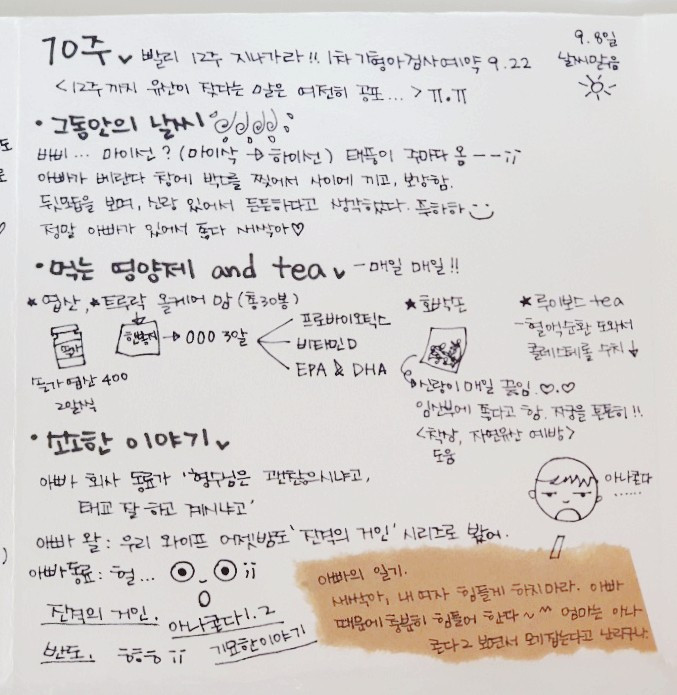 10주 빨리 12주 지나가라!! 1차 기형아검사예약 9.22
9.8일
날씨맑음
<12주까지 유산이 잦다는 말은 여전히 공포...> ㅠ.ㅠ
• 그동안의 날씨
바비... 마이선? (마이삭 → 하이선) 태풍이 주마다 옴 ㅡㅡ;;
아빠가 베란다 창에 박스를 찢어서 사이에 끼고, 보강함.
뒷모습을 보며, 신랑 있어서 든든하다고 생각했다. 푸하하
정말 아빠가 있어서 좋다 새싹아♡
• 먹는 영양제 and tea - 매일 매일!!
★ 엽산, ★ 트루락 올케어 맘 (총30봉)
솔가
한봉지 → 000 3알
프로바이오틱스
비타민D
EPA & DHA
솔가 엽산 400
2알씩
★ 호박손
신랑이 매일 끓임.♡.♡
임산부에 좋다고 함. 자궁을 튼튼히!!
<착상, 자연유산 예방>
도움
★ 루이보스 tea
- 혈액순환 도와서
콜레스테롤 수치↓
• 소소한 이야기
아빠 회사 동료가 '형수님은 괜찮으시냐고,
태교 잘 하고 계시냐고'
아빠 왈: 우리 와이프 어젯밤도 '진격의 거인' 시리즈로 봤어.
아빠동료: 헐... ;;
진격의 거인. 아나콘다 1.2
반도. ㅎㅎㅎ ;; 기묘한이야기
아나콘다
......
아빠의 일기.
새싹아, 내 여자 힘들게 하지마라. 아빠
때문에 충분히 힘들어 한다~^^ 엄마는 아나
콘다2 보면서 모기잡는다고 난리구나